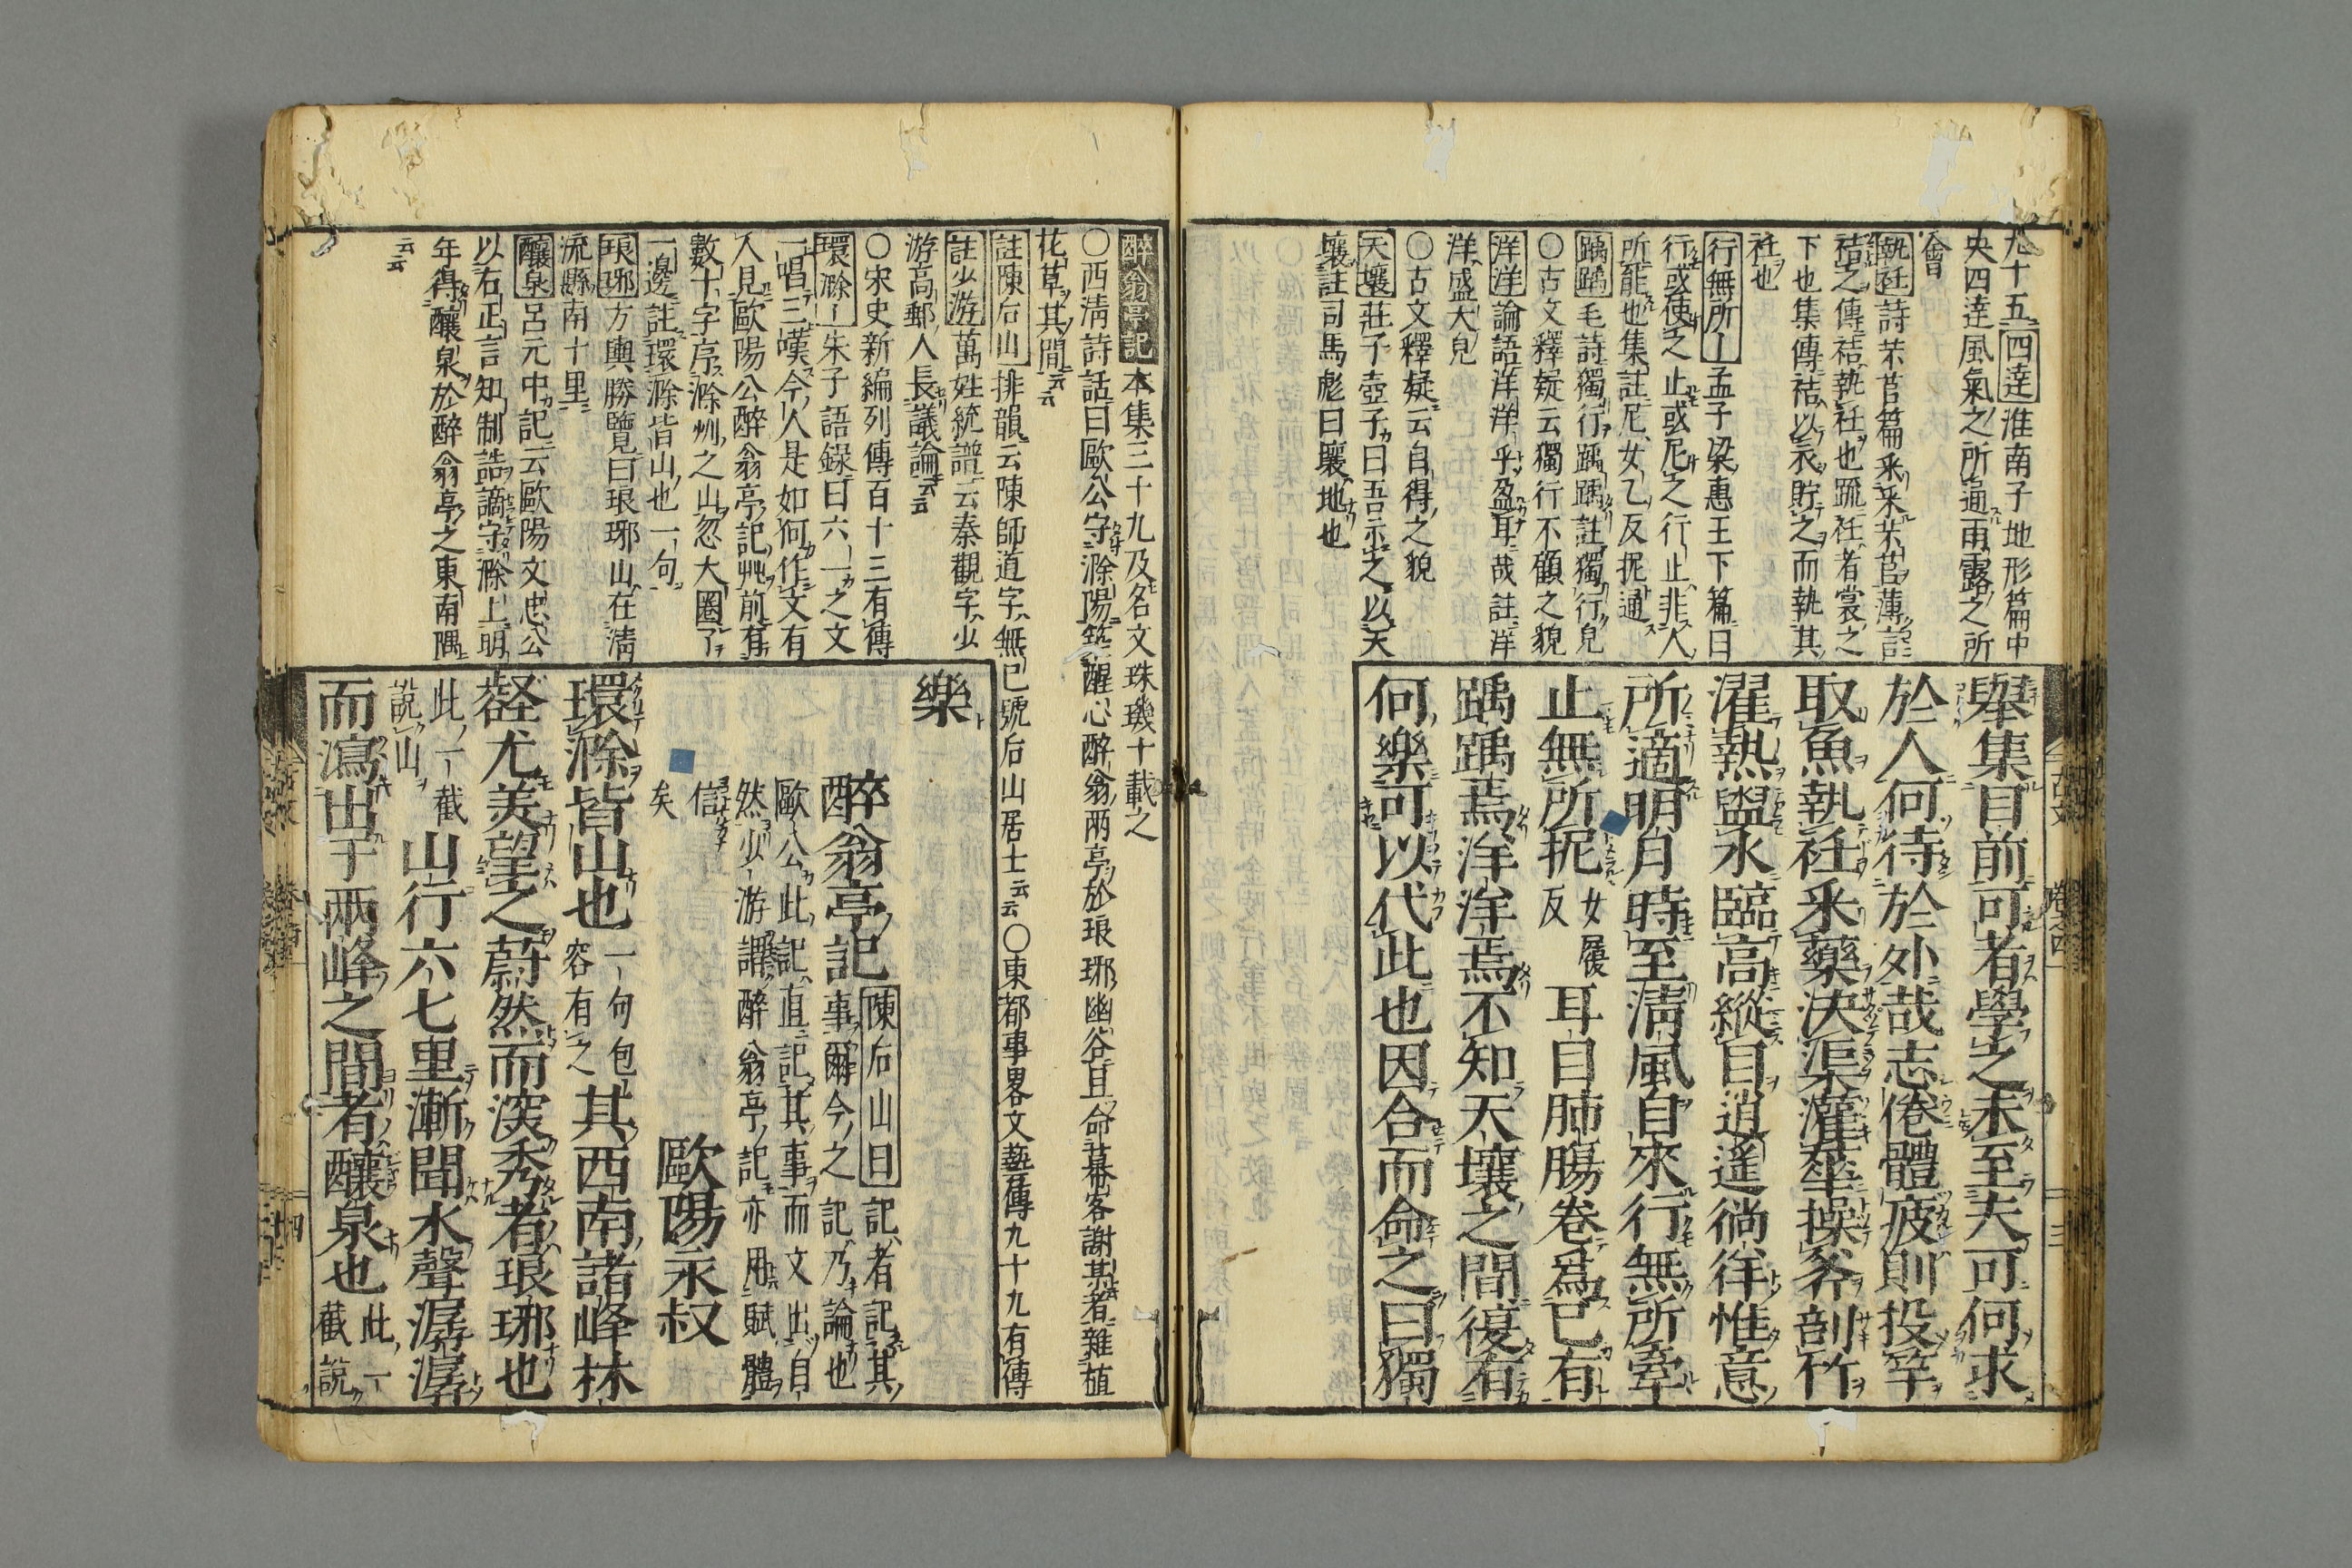 九十五四達淮南子地形篇中
央四達風氣之所通雨露之所
會
執衽詩芣苢篇采采芣苢薄言
袺之傳袺執衽也疏衽者裳之
下也集傳袺以衣貯之而執其
衽也
行無所—孟子梁惠王下篇曰
行或使之止或尼之行止非人
所能也集註尼女乙反抳通
踽踽毛詩獨行踽踽註獨行皃
〇古文釋疑云獨行不顧之貌
洋洋論語洋洋乎盈耳哉註洋
洋盛大皃
〇古文釋疑云自得之貌
天壤莊子壺子曰吾示之以天
壤註司馬彪曰壤地也
舉集目前可者學之未至夫可何求
於人何待於外哉志倦體疲則投竿
取魚執衽釆藥決渠灌華操斧剖竹
濯熱盥水臨高縱目逍遙徜徉惟意
所適明月時至清風自來行無所牽
止無所抳女履反耳目肺腸卷爲已有
踽踽焉洋洋焉不知天壤之間復有
何樂可以代此也因合而命之曰獨
古文 卷之四 十三
醉翁亭記本集三十九及名文珠璣十載之
〇西淸詩話曰歐公守滁陽築醒心醉翁兩亭於琅琊幽谷且命幕客謝某者雜植
花草其間云云
註陳后山排韻云陳師道字無已號后山居士云云〇東都事畧文藝傳九十九有傳
註少游萬姓統譜云秦觀字少
游高郵人長議論云云
〇宋史新編列傳百十三有傳
環滁—朱子語錄曰六一之文
一唱三嘆今人是如何作文有
人見歐陽公醉翁亭記艸前有
數十字序滁州之山忽大圈了
一邊註環滁皆山也一句
琅琊方輿勝覽曰琅琊山在淸
流縣南十里
釀泉呂元中記云歐陽文忠公
以右正言知制誥謫守滁上明
年得釀泉於醉翁亭之東南隅
云云
樂
醉翁亭記陳后山曰記者記其
事爾今之記乃論也
歐公此記直記其事而文出自
然少游謂醉翁亭記亦用賦體
信
矣
歐陽永叔
環滁皆山也一句包容有之其西南諸峰林
壑尤美望之蔚然而深秀者琅琊也
此一截說山山行六七里漸聞水聲潺潺
而瀉出于兩峰之間者釀泉也此一截說